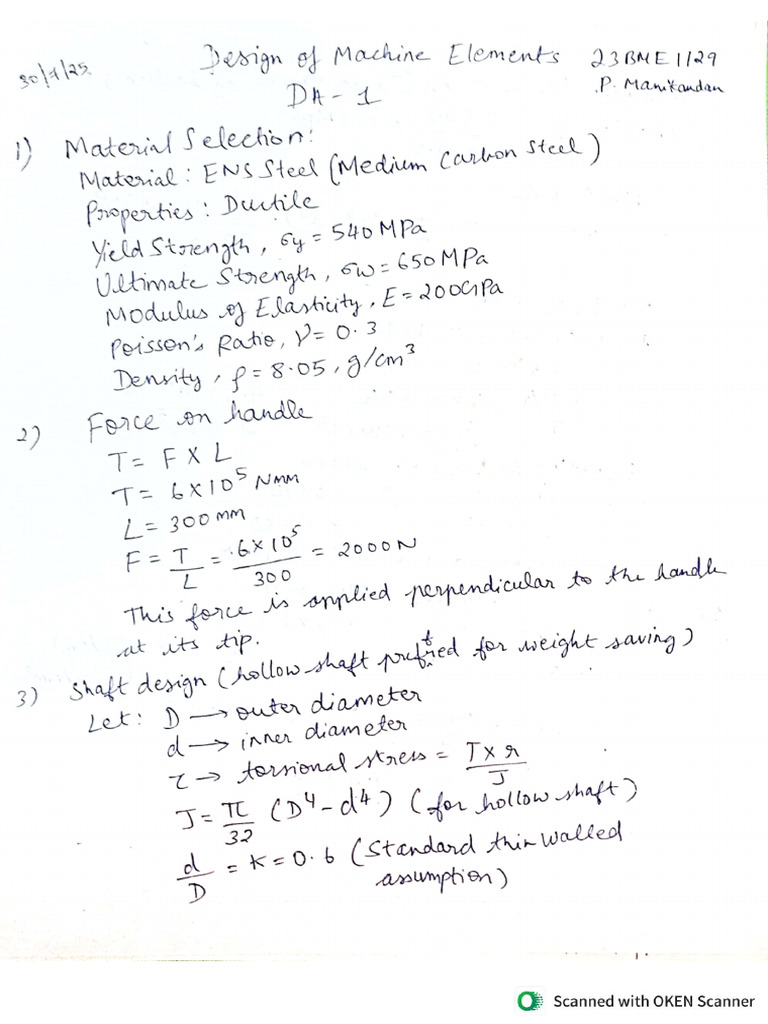 30/7/25
Design of Machine Elements 23BME1129
DA - 1 P. Manikandan
1) Material Selection:
Material: EN8 Steel (Medium Carbon Steel)
Properties: Ductile
Yield Strength, σy = 540 MPa
Ultimate Strength, σw = 650 MPa
Modulus of Elasticity, E = 200GPa
Poisson's Ratio, ν = 0.3
Density, ρ = 8.05, g/cm³
2) Force on handle
T = F × L
T = 6×10⁵ Nmm
L = 300 mm
F = T/L = 6×10⁵/300 = 2000N
This force is applied perpendicular to the handle
at its tip.
3) Shaft design (hollow shaft preferred for weight saving)
Let: D → outer diameter
d → inner diameter
τ → torsional stress = T×r/J
J = π/32 (D⁴ - d⁴) (for hollow shaft)
d/D = K = 0.6 (Standard thin walled
assumption)
Scanned with OKEN Scanner